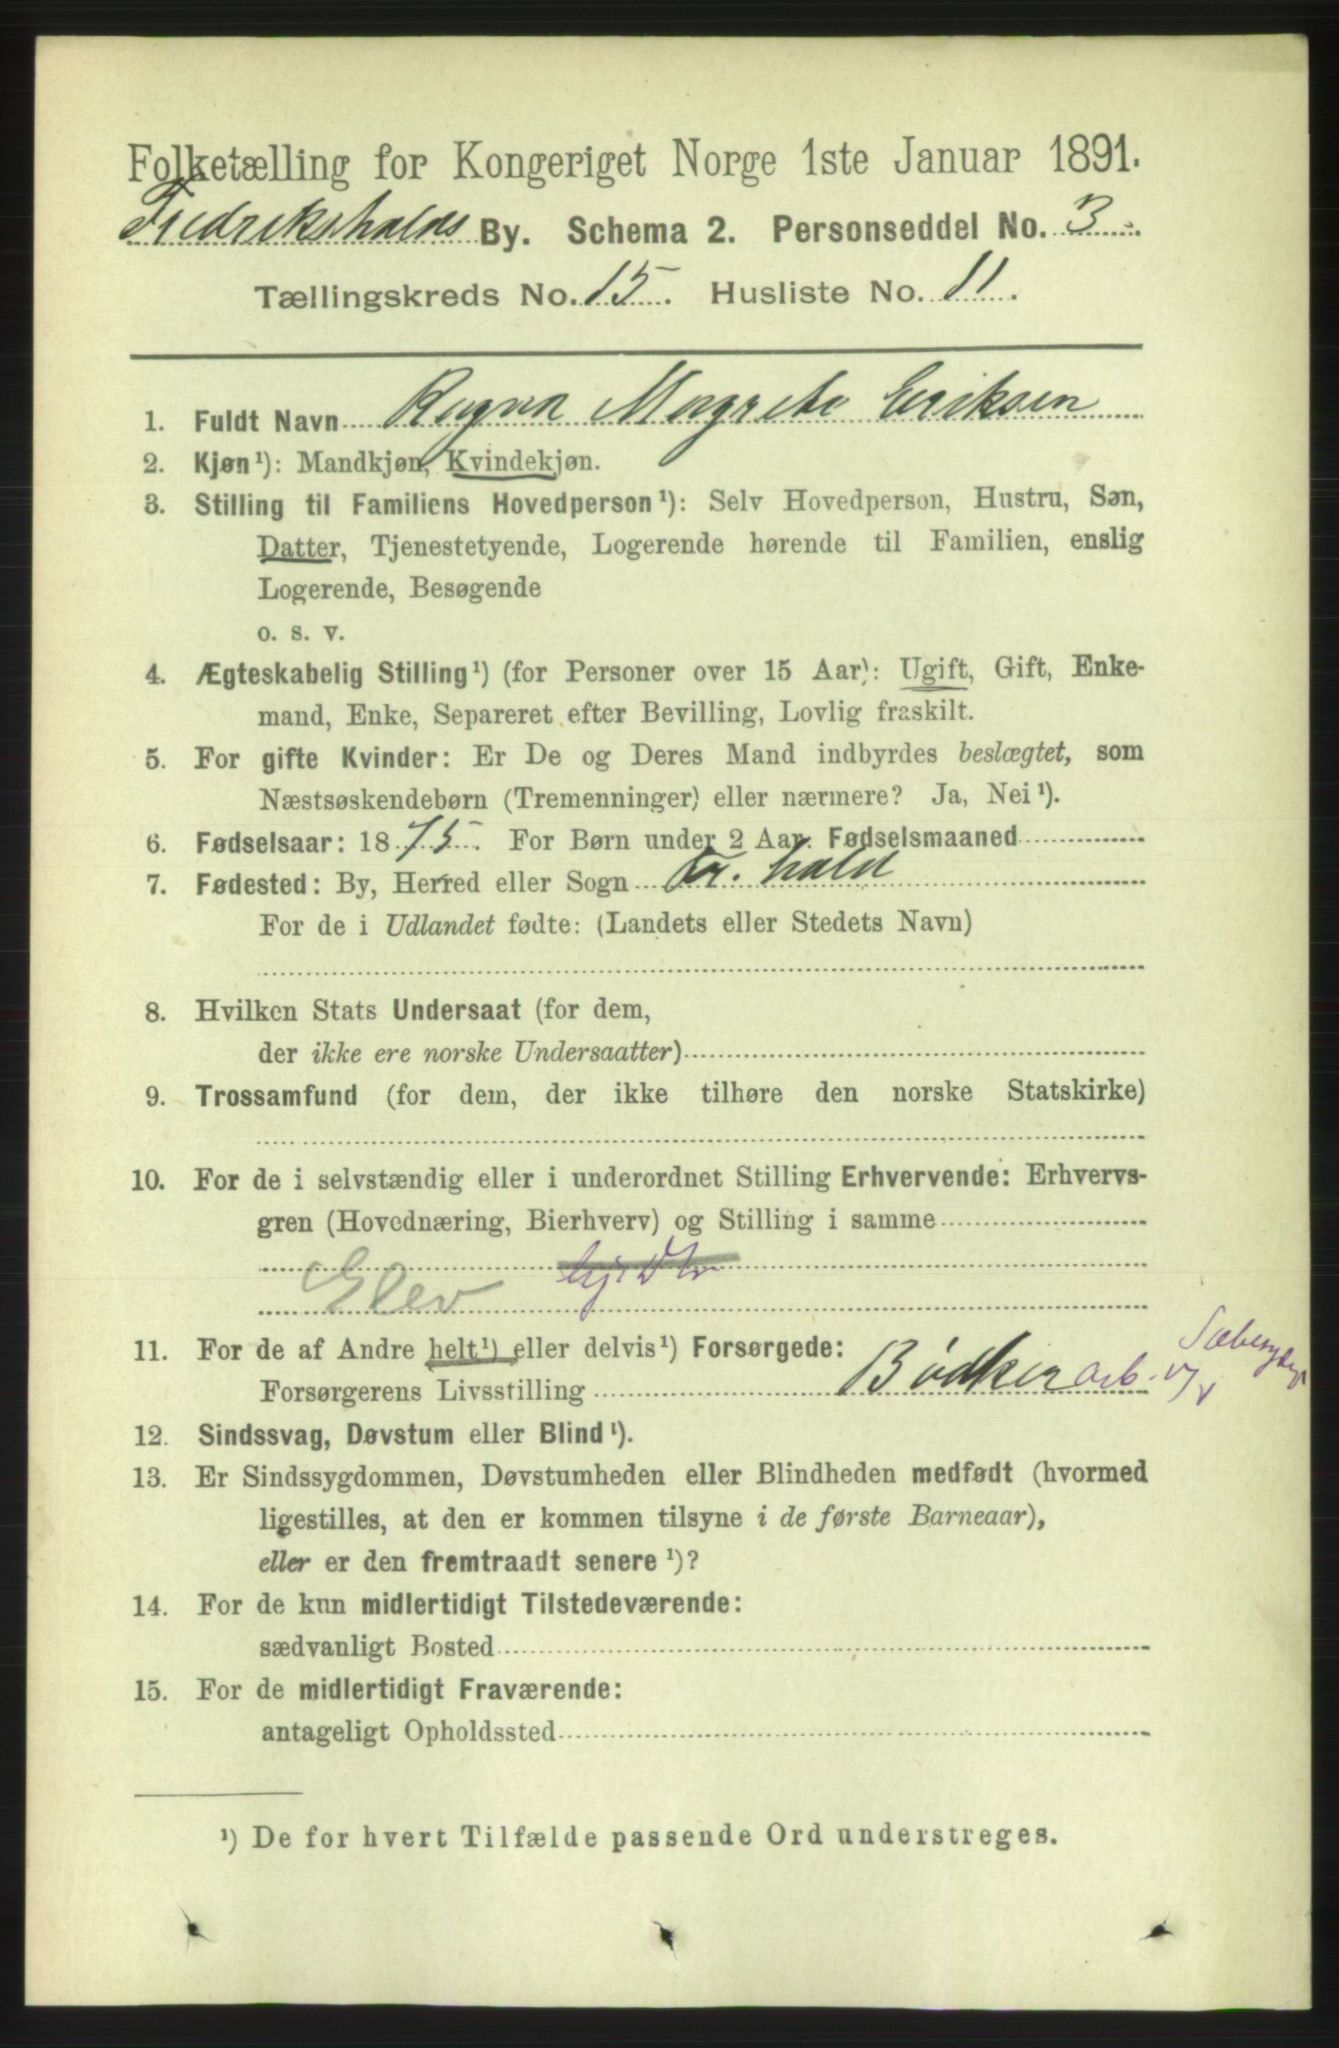 Folketælling for Kongeriget Norge 1ste Januar 1891.
Fredrikshalds By. Schema 2. Personseddel No. 3.
Tællingskreds No. 15. Husliste No. 11.
1. Fuldt Navn Ragna Magrete Eriksen
2. Kjøn¹): Mandkjøn, Kvindekjøn.
3. Stilling til Familiens Hovedperson¹): Selv Hovedperson, Hustru, Søn,
Datter, Tjenestetyende, Logerende hørende til Familien, enslig
Logerende, Besøgende
o. s. v.
4. Ægteskabelig Stilling¹) (for Personer over 15 Aar): Ugift, Gift, Enke-
mand, Enke, Separeret efter Bevilling, Lovlig fraskilt.
5. For gifte Kvinder: Er De og Deres Mand indbyrdes beslægtet, som
Næstsøskendebørn (Tremenninger) eller nærmere? Ja, Nei¹).
6. Fødselsaar: 1875. For Børn under 2 Aar. Fødselsmaaned
7. Fødested: By, Herred eller Sogn Fr. hald
For de i Udlandet fødte: (Landets eller Stedets Navn)
8. Hvilken Stats Undersaat (for dem,
der ikke ere norske Undersaatter)
9. Trossamfund (for dem, der ikke tilhøre den norske Statskirke)
10. For de i selvstændig eller i underordnet Stilling Erhvervende: Erhvervs-
gren (Hovednæring, Bierhverv) og Stilling i samme
Elev
11. For de af Andre helt¹) eller delvis¹) Forsørgede:
Forsørgerens Livsstilling Bødker arb. v/
12. Sindssvag, Døvstum eller Blind¹).
13. Er Sindssygdommen, Døvstumheden eller Blindheden medfødt (hvormed
ligestilles, at den er kommen tilsyne i de første Barneaar),
eller er den fremtraadt senere¹)?
14. For de kun midlertidigt Tilstedeværende:
sædvanligt Bosted
15. For de midlertidigt Fraværende:
antageligt Opholdssted
¹) De for hvert Tilfælde passende Ord understreges.